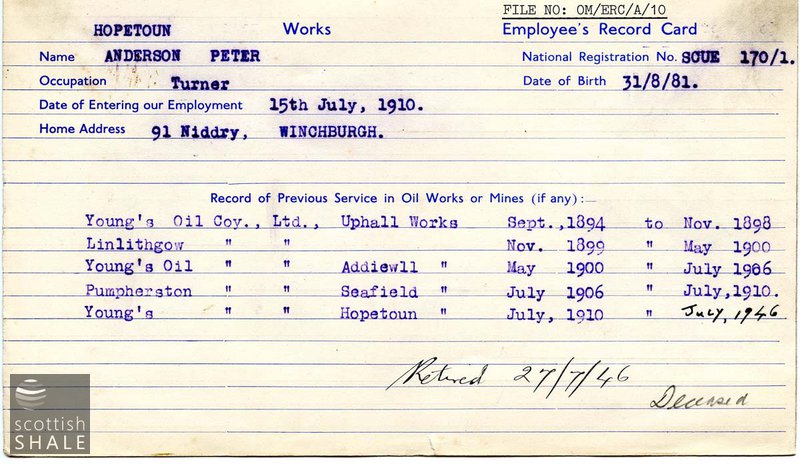 FILE NO: OM/ERC/A/10
HOPETOUN Works Employee's Record Card
Name ANDERSON PETER National Registration No. SCUE 170/1.
Occupation Turner Date of Birth 31/8/81.
Date of Entering our Employment 15th July, 1910.
Home Address 91 Niddry, WINCHBURGH.
Record of Previous Service in Oil Works or Mines (if any):—
Young's Oil Coy., Ltd., Uphall Works Sept., 1894 to Nov. 1898
Linlithgow " " Nov. 1899 " May 1900
Young's Oil " " Addiewll " May 1900 " July 1906
Pumpherston " " Seafield " July 1906 " July, 1910.
Young's " " Hopetoun " July, 1910 " July, 1946
Retired 27/7/46
Deceased
scottish
SHALE